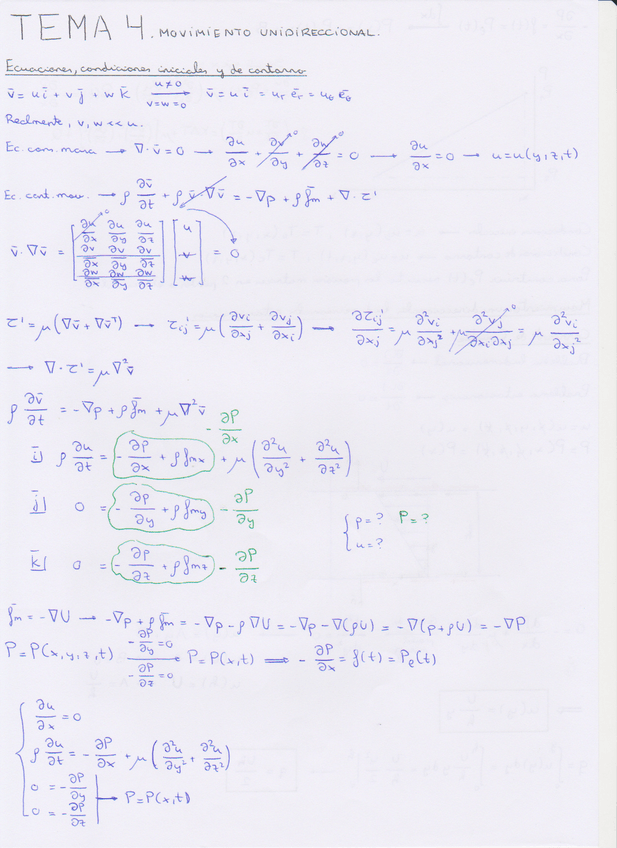 TEMA 4. MOVIMIENTO UNIDIRECCIONAL.
Ecuaciones, condiciones iniciales y de contorno
v̄ = u ī + v j̄ + w k̄ —(u≠0 / v=w=0)→ v̄ = u ī = u_r ē_r = u_θ ē_θ
Realmente, v, w << u.
Ec. cons. masa → ∇·v̄ = 0 → ∂u/∂x + ∂v/∂y + ∂w/∂z = 0 → ∂u/∂x = 0 → u = u(y,z,t)
Ec. cant. mov. → ρ ∂v̄/∂t + ρ v̄·∇v̄ = -∇p + ρ f̄m + ∇·τ'
v̄·∇v̄ = [∂u/∂x ∂u/∂y ∂u/∂z; ∂v/∂x ∂v/∂y ∂v/∂z; ∂w/∂x ∂w/∂y ∂w/∂z] [u; v; w] = 0
τ' = μ(∇v̄ + ∇v̄ᵀ) → τij' = μ(∂vi/∂xj + ∂vj/∂xi) → ∂τij'/∂xj = μ ∂²vi/∂xj² + μ ∂²vj/∂xi∂xj = μ ∂²vi/∂xj²
→ ∇·τ' = μ∇²v̄
ρ ∂v̄/∂t = -∇p + ρ f̄m + μ∇²v̄
-∂P/∂x
ī| ρ ∂u/∂t = -∂p/∂x + ρ fmx + μ(∂²u/∂y² + ∂²u/∂z²)
j̄| 0 = -∂p/∂y + ρ fmy -∂P/∂y
{ p = ? P = ?
u = ?
k̄| 0 = -∂p/∂z + ρ fmz -∂P/∂z
f̄m = -∇U → -∇p + ρ f̄m = -∇p - ρ∇U = -∇p - ∇(ρU) = -∇(p+ρU) = -∇P
P = P(x,y,z,t) —(-∂P/∂y = 0 / -∂P/∂z = 0)→ P = P(x,t) ⟹ -∂P/∂x = f(t) = Pe(t)
{ ∂u/∂x = 0
ρ ∂u/∂t = -∂P/∂x + μ(∂²u/∂y² + ∂²u/∂z²)
0 = -∂P/∂y
0 = -∂P/∂z | → P = P(x,t)